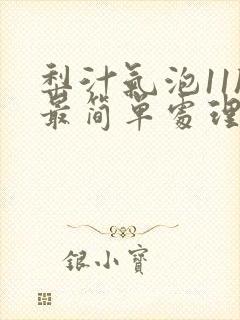 梨汁氣泡11
最簡單處理
銀小寶